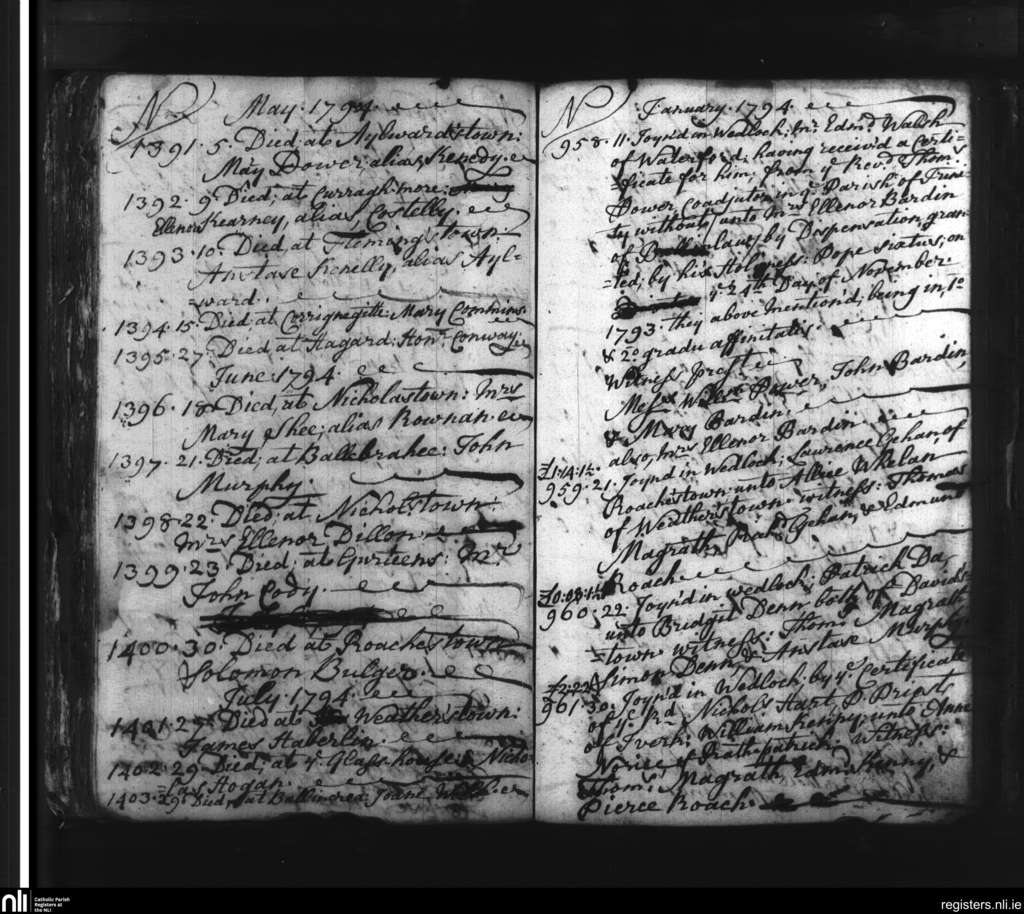 No May. 1794.
1391. 5. Died; at Aylwardstown:
Mary Dower, alias Kenedy.
1392. 9. Died; at Curraghmore:
Ellenor Kearney, alias Costelly.
1393. 10. Died at Flemingstown:
Anstase Kenelly, alias Ayl=
=ward.
1394. 15. Died at Corrignegitte: Mary Commins.
1395. 27. Died; at Hagard: Honr. Conway.
June. 1794.
1396. 18. Died, at Nicholastown: Mrs
Mary Shee; alias Rownan.
1397. 21. Died; at Ballebrahee: John
Murphy.
1398. 22. Died; at Nicholstown:
Mrs Ellenor Dillon.
1399. 23. Died; at Gurteens: Mr.
John Cody.
1400. 30. Died at Roachestown
Solomon Bulger.
July. 1794.
1401. 27. Died at Weatherstown:
James Haberlin.
1402. 29. Died; at ye Glass house: Nicho=
=las Hogan.
1403. 29. Died; at Ballincrea: Joane Welsh.
No January. 1794.
958. 11. Joyn'd in Wedlock; Mr. Edmd Walsh
of Waterford; having receiv'd a Certi=
=ficate for him, from ye Revd Thoms
Power, Coadjutor in ye Parish of Trine=
=ty without, unto Mrs Ellenor Bardin
of by Dispensation, gran=
=ted, by his Holyness: Pope Pius
ye 24th Day of November
1793. they above mentiond, being in, 1o
& 2o gradu affinitatis.
Witness presst
Messrs Willm Power, John Bardin,
& Mary Bardin.
also, Mrs Ellenor Bardin
£1:14:1½
959. 21. Joyn'd in Wedlock; Lawrence Gehan, of
Roachestown unto Allice Whelan
of Weatherstown witness: Thomas
Magrath, Richd Gehan, & Edmund
Roach
£0:00:1½
960. 22. Joyn'd in wedlock; Patrick Da
unto Bridgit Denn both of Davids=
=town witness: Thoms Magrath
Simon Denn, & Anstase Murphy.
£2:22
961. 30. Joyn'd in Wedlock: by ye Certificate
of ye Frd. Nichols Hart, P. Priest
of Iverk: William Kenny, unto Anne
of Rathpatrick: Witness:
Thoms Magrath, Edmd Kenny, &
Pierce Roach.
nli Catholic Parish
Registers at
the NLI
registers.nli.ie